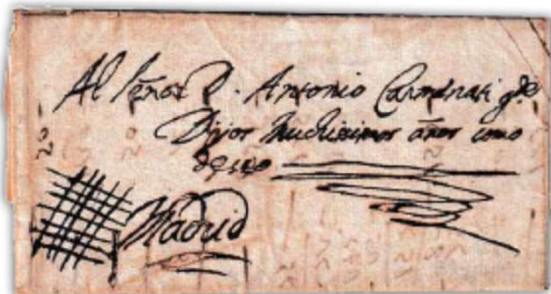 Al Señor D. Antonio Carmenati gde
Dios muchissimos años como
deseo
Madrid